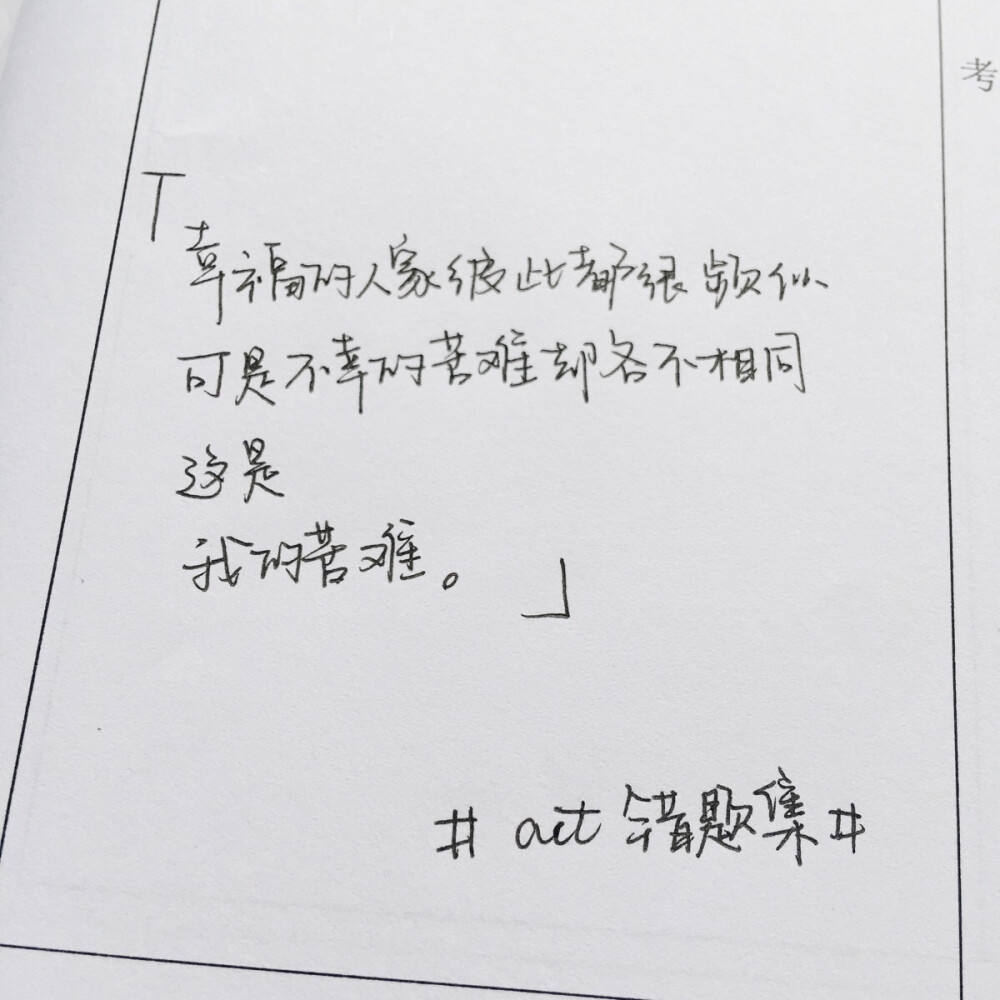 「幸福的人家彼此都很频似
可是不幸的苦难却各不相同
这是
我的苦难。」
# act 错题集#
考